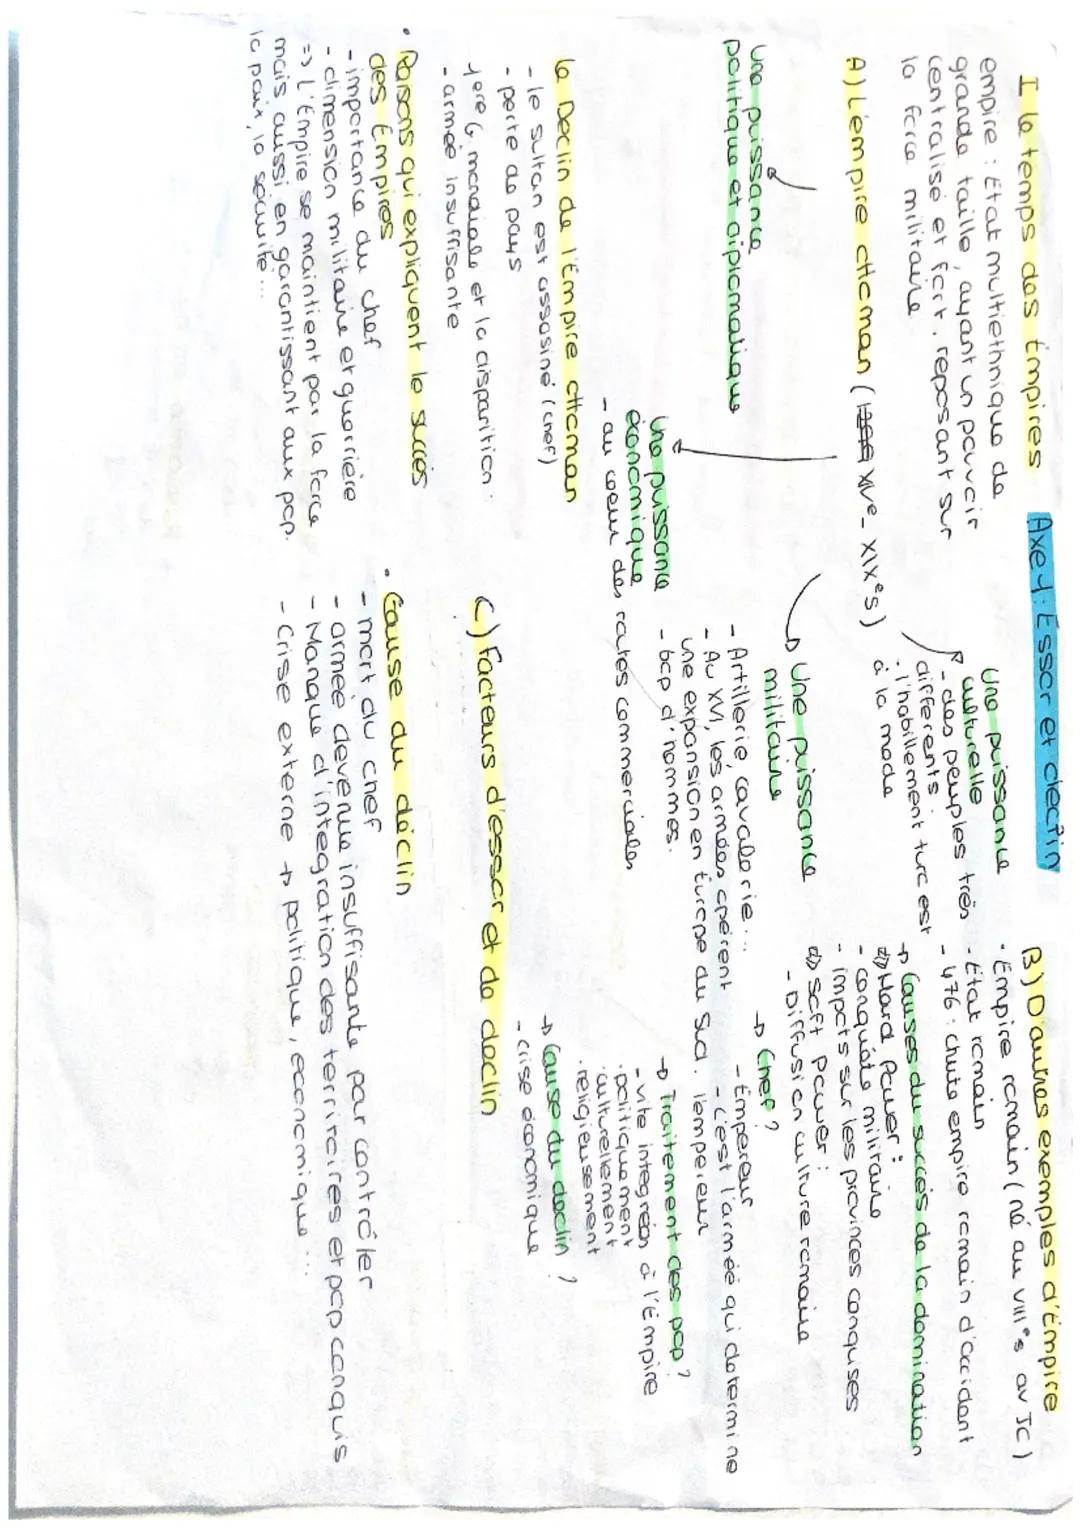 Axe 1: Essor et declin
I le temps des Empires
empire : Etat multiethnique de
grande taille, ayant un pouvoir
centralisé et fort, reposant sur
la force militaire
A) L'empire ottoman (XIVe - XIXes)
Une puissance
politique et diplomatique
Une puissance
culturelle
- des peuples très
différents.
- l'habillement turc est
à la mode
Une puissance
militaire
- Artillerie, cavalerie...
- Au XVI, les armées opèrent
une expansion en Europe du Sud.
- bcp d'hommes.
Une puissance
économique
- au coeur des routes commerciales
le Declin de l'Empire ottoman
- le sultan est assasiné (chef)
- perte de pays
1ere G. mondiale et la disparition:
- armée insuffisante
B) D'autres exemples d'Empire
• Empire romain (né au VIII°s av JC)
- Etat romain
- 476 : chute empire romain d'occident
→ Causes du succès de la domination
⇨ Hard Power :
- conquête militaire
- impots sur les provinces conquises
⇨ Soft power :
- Diffusion culture romaine
→ Chef ?
- Empereur
- c'est l'armée qui determine
l'empereur
→ Traitement des pop ?
- vite integréen à l'Empire
• politiquement
• culturellement
• religieusement
→ Cause du declin ?
- crise économique
C) Facteurs d'essor et de declin
• Raisons qui expliquent le succès
des Empires
- importance du chef
- dimension militaire et guerrière
=> L'Empire se maintient par la force
mais aussi en garantissant aux pop.
la paix, la sécurité...
• Cause du déclin
- mort du chef
- armée devenue insuffisante par contrôler
- Manque d'integration des territoires et pop conquis
- Crise externe → politique, economique...